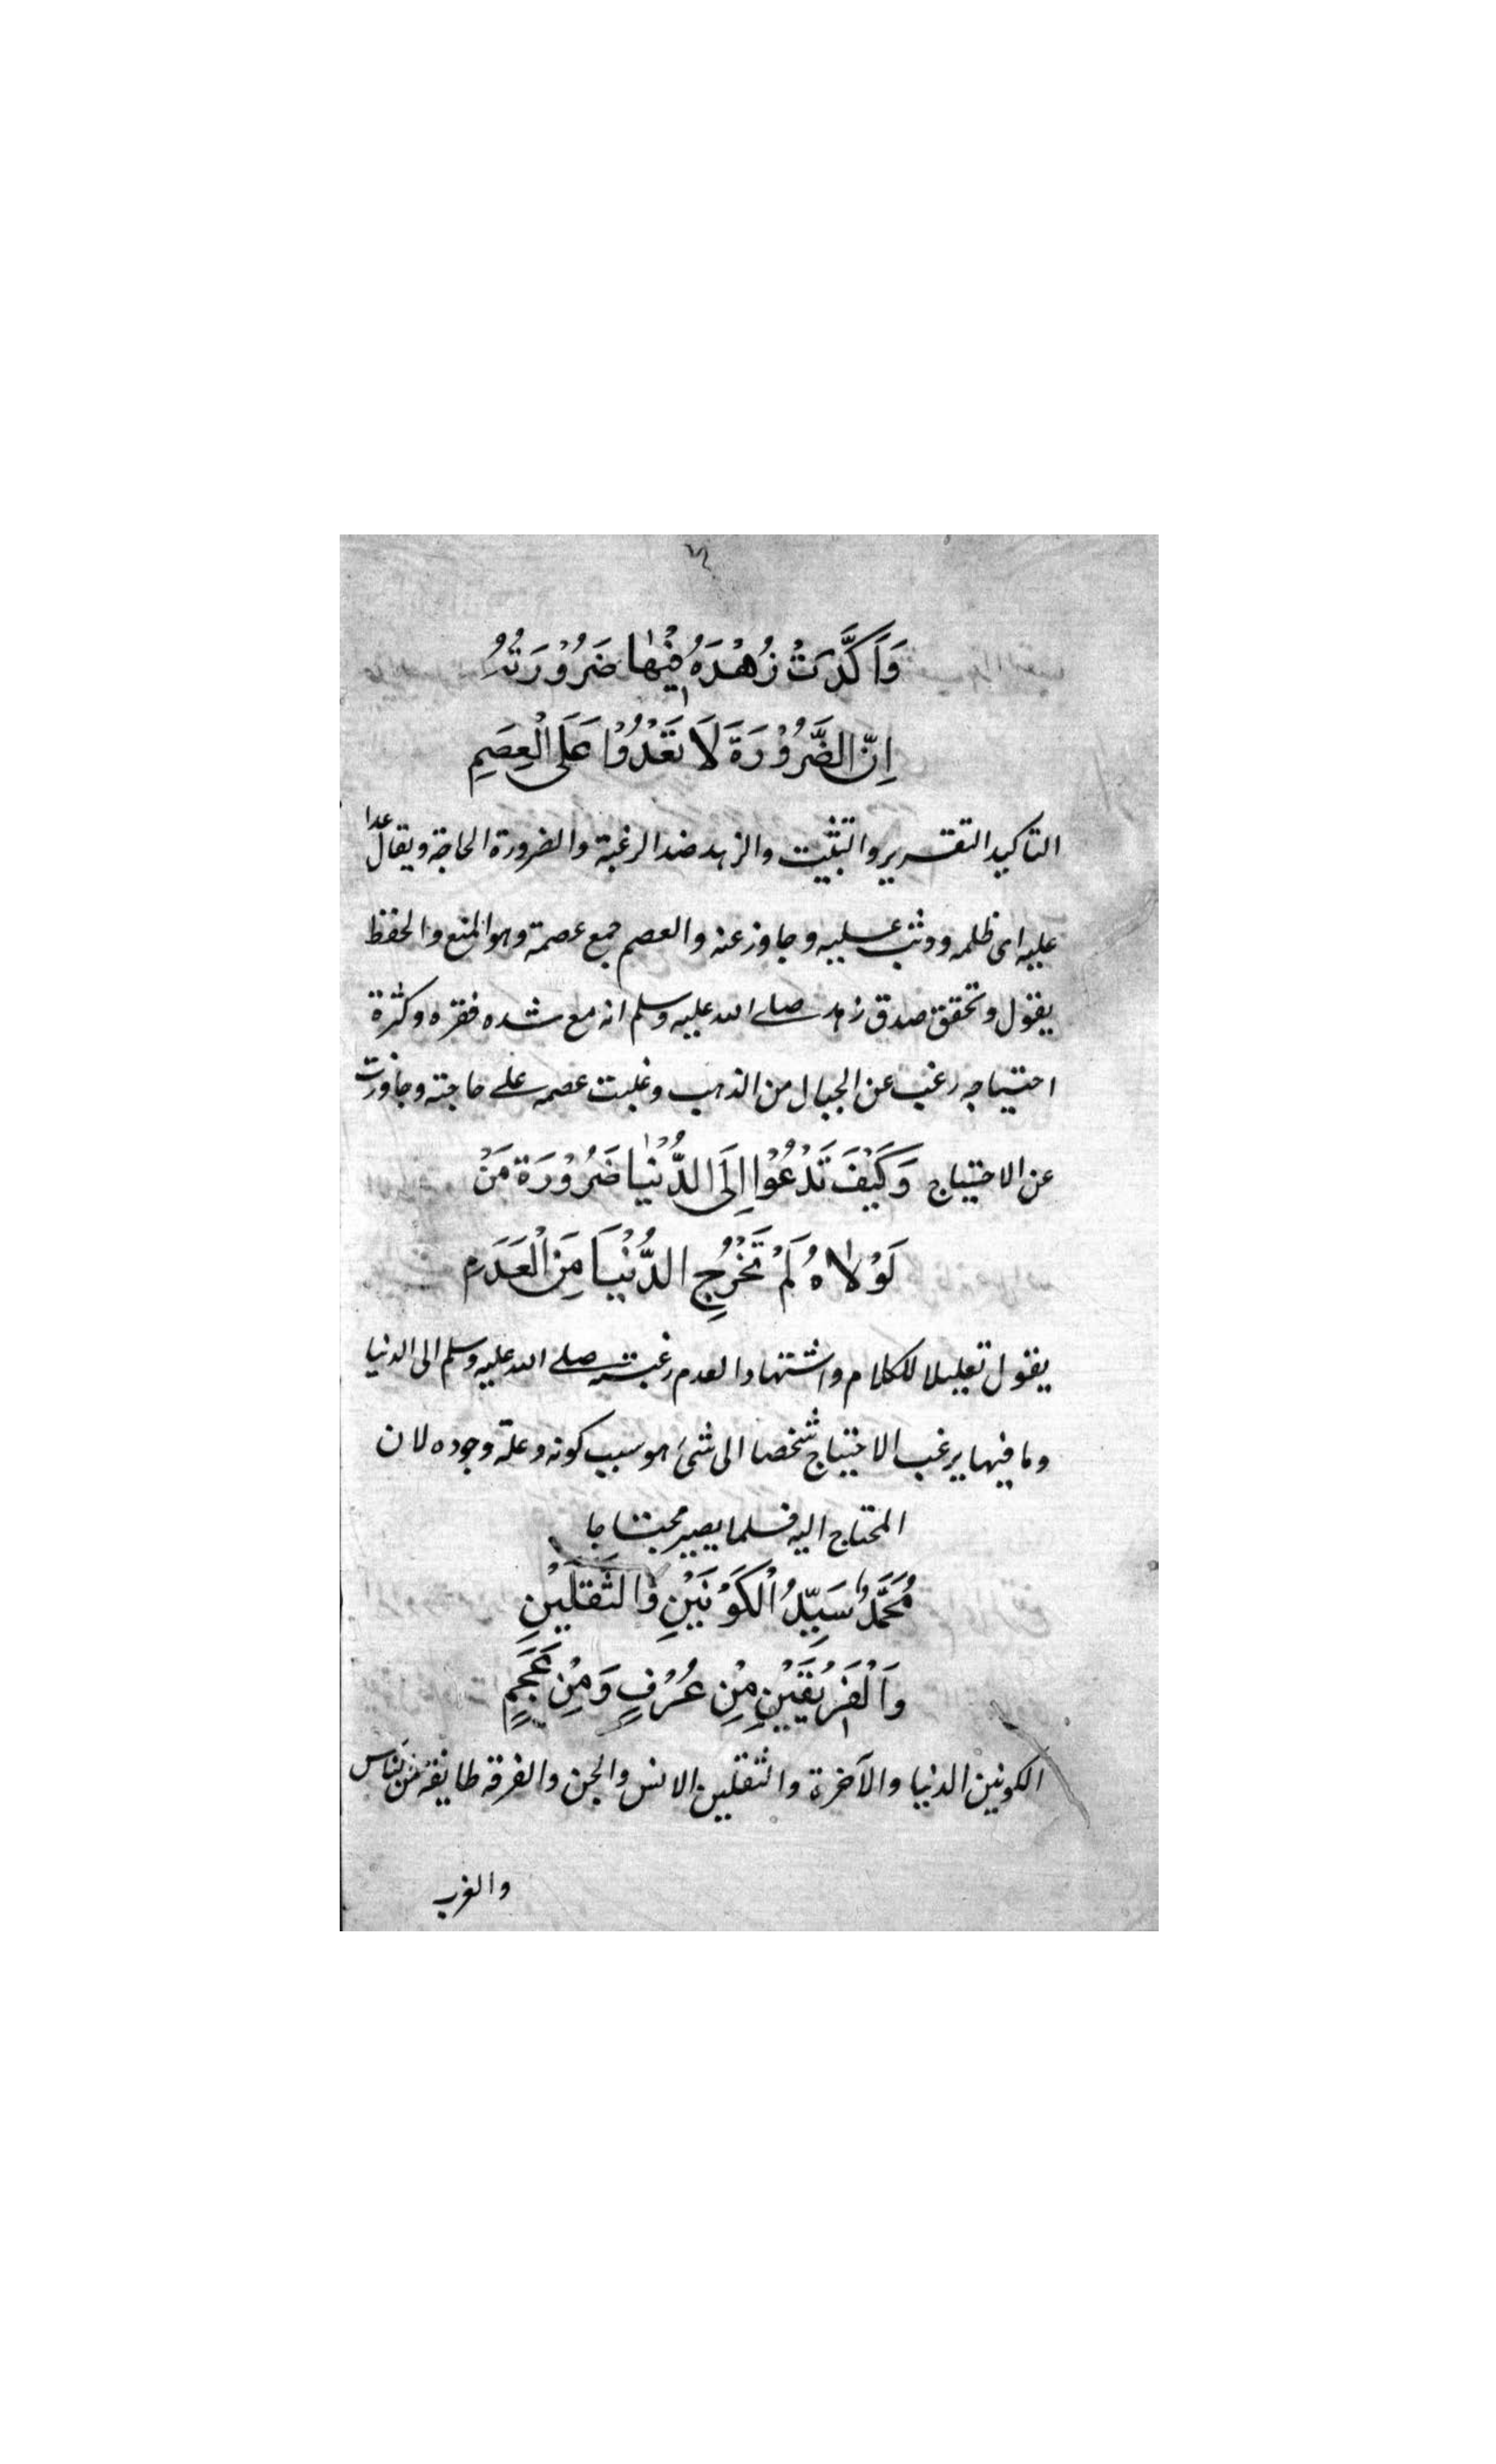 وَاَكَّدَتْ زُهْدَهُ فِيْهَا ضَرُوْرَتُهُ
اِنَّ الضَّرُوْرَةَ لَا تَعْدُوْا عَلَى الْعِصَمِ
التاكيد التقرير والتثبيت والزهد ضد الرغبة والضرورة الحاجة ويقال عدا
عليه اى ظلمه ووثب عليه وجاوز عنه والعصم جمع عصمة وهو المنع والحفظ
يقول وتحقق صدق زهده صلى الله عليه وسلم انه مع شده فقره وكثرة
احتياجه رغب عن الجبال من الذهب وغلبت عصمه على حاجته وجاوزت
عن الاحتياج وَكَيْفَ تَدْعُوْا اِلَى الدُّنْيَا ضَرُوْرَةُ مَنْ
لَوْلَاهُ لَمْ تَخْرُجِ الدُّنْيَا مِنَ الْعَدَمِ
يقول تعليلا للكلام واشتهادا لعدم رغبته صلى الله عليه وسلم الى الدنيا
وما فيها يرغب الاحتياج شخصا الى شئ هو سبب كونه وعلة وجوده لان
المحتاج اليه فلما يصير محتاجا
مُحَمَّدٌ سَيِّدُ الْكَوْنَيْنِ وَالثَّقَلَيْنِ
وَالْفَرِيْقَيْنِ مِنْ عُرْفٍ وَمِنْ عَجَمٍ
الكونين الدنيا والآخرة والثقلين الانس والجن والفرقة طايفة من الناس
والعرب